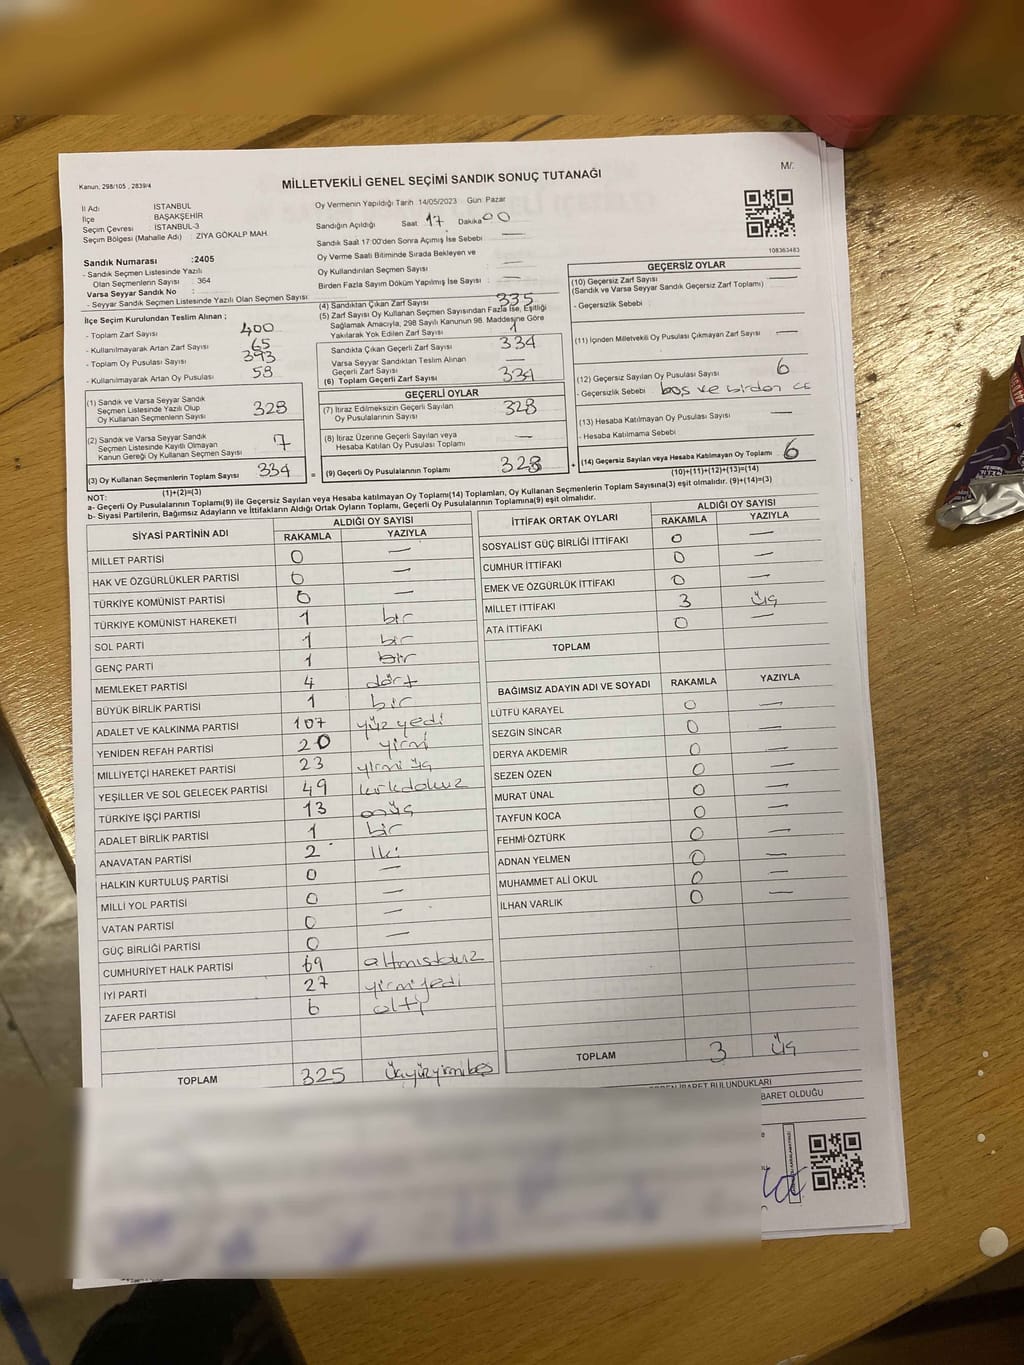 Kanun, 298/105 , 2839/4
M/.
MİLLETVEKİLİ GENEL SEÇİMİ SANDIK SONUÇ TUTANAĞI
İl Adı İSTANBUL
İlçe BAŞAKŞEHİR
Seçim Çevresi İSTANBUL-3
Seçim Bölgesi (Mahalle Adı) : ZİYA GÖKALP MAH.
Sandık Numarası :2405
- Sandık Seçmen Listesinde Yazılı
Olan Seçmenlerin Sayısı : 364
Varsa Seyyar Sandık No :
- Seyyar Sandık Seçmen Listesinde Yazılı Olan Seçmen Sayısı
Oy Vermenin Yapıldığı Tarih :14/05/2023 Gün: Pazar
Sandığın Açıldığı Saat 17 Dakika 00
Sandık Saat 17:00'den Sonra Açımış İse Sebebi —
Oy Verme Saati Bitiminde Sırada Bekleyen ve
Oy Kullandırılan Seçmen Sayısı : —
Birden Fazla Sayım Döküm Yapılmış İse Sayısı : —
108363483
İlçe Seçim Kurulundan Teslim Alınan ;
- Toplam Zarf Sayısı 400
- Kullanılmayarak Artan Zarf Sayısı 65
- Toplam Oy Pusulası Sayısı 393
- Kullanılmayarak Artan Oy Pusulası 58
(1) Sandık ve Varsa Seyyar Sandık
Seçmen Listesinde Yazılı Olup
Oy Kullanan Seçmenlerin Sayısı 328
(2) Sandık ve Varsa Seyyar Sandık
Seçmen Listesinde Kayıtlı Olmayan
Kanun Gereği Oy Kullanan Seçmen Sayısı 7
(3) Oy Kullanan Seçmenlerin Toplam Sayısı 334
(1)+(2)=(3)
(4) Sandıktan Çıkan Zarf Sayısı 335
(5) Zarf Sayısı Oy Kullanan Seçmen Sayısından Fazla İse, Eşitliği
Sağlamak Amacıyla, 298 Sayılı Kanunun 98. Maddesine Göre
Yakılarak Yok Edilen Zarf Sayısı 1
Sandıkta Çıkan Geçerli Zarf Sayısı 334
Varsa Seyyar Sandıktan Teslim Alınan
Geçerli Zarf Sayısı —
(6) Toplam Geçerli Zarf Sayısı 334
GEÇERLİ OYLAR
(7) İtiraz Edilmeksizin Geçerli Sayılan
Oy Pusulalarının Sayısı 328
(8) İtiraz Üzerine Geçerli Sayılan veya
Hesaba Katılan Oy Pusulası Toplamı —
= (9) Geçerli Oy Pusulalarının Toplamı 328
GEÇERSİZ OYLAR
(10) Geçersiz Zarf Sayısı —
(Sandık ve Varsa Seyyar Sandık Geçersiz Zarf Toplamı)
- Geçersizlik Sebebi :
(11) İçinden Milletvekili Oy Pusulası Çıkmayan Zarf Sayısı —
(12) Geçersiz Sayılan Oy Pusulası Sayısı 6
- Geçersizlik Sebebi : boş ve birden
(13) Hesaba Katılmayan Oy Pusulası Sayısı —
- Hesaba Katılmama Sebebi :
+ (14) Geçersiz Sayılan veya Hesaba Katılmayan Oy Toplamı 6
(10)+(11)+(12)+(13)=(14)
NOT:
a- Geçerli Oy Pusulalarının Toplamı(9) ile Geçersiz Sayılan veya Hesaba katılmayan Oy Toplamı(14) Toplamları, Oy Kullanan Seçmenlerin Toplam Sayısına(3) eşit olmalıdır. (9)+(14)=(3)
b- Siyasi Partilerin, Bağımsız Adayların ve İttifakların Aldığı Ortak Oyların Toplamı, Geçerli Oy Pusulalarının Toplamına(9) eşit olmalıdır.
SİYASİ PARTİNİN ADI ALDIĞI OY SAYISI
RAKAMLA YAZIYLA
MİLLET PARTİSİ 0 —
HAK VE ÖZGÜRLÜKLER PARTİSİ 0 —
TÜRKİYE KOMÜNİST PARTİSİ 0 —
TÜRKİYE KOMÜNİST HAREKETİ 1 bir
SOL PARTİ 1 bir
GENÇ PARTİ 1 bir
MEMLEKET PARTİSİ 4 dört
BÜYÜK BİRLİK PARTİSİ 1 bir
ADALET VE KALKINMA PARTİSİ 107 yüz yedi
YENİDEN REFAH PARTİSİ 20 yirmi
MİLLİYETÇİ HAREKET PARTİSİ 23 yirmi üç
YEŞİLLER VE SOL GELECEK PARTİSİ 49 kırkdokuz
TÜRKİYE İŞÇİ PARTİSİ 13 onüç
ADALET BİRLİK PARTİSİ 1 bir
ANAVATAN PARTİSİ 2 iki
HALKIN KURTULUŞ PARTİSİ 0 —
MİLLİ YOL PARTİSİ 0 —
VATAN PARTİSİ 0 —
GÜÇ BİRLİĞİ PARTİSİ 0 —
CUMHURİYET HALK PARTİSİ 69
İYİ PARTİ 27 yirmiyedi
ZAFER PARTİSİ 6 altı
TOPLAM 325 üçyüzyirmibeş
İTTİFAK ORTAK OYLARI ALDIĞI OY SAYISI
RAKAMLA YAZIYLA
SOSYALİST GÜÇ BİRLİĞİ İTTİFAKI 0 —
CUMHUR İTTİFAKI 0 —
EMEK VE ÖZGÜRLÜK İTTİFAKI 0 —
MİLLET İTTİFAKI 3 üç
ATA İTTİFAKI 0 —
TOPLAM
BAĞIMSIZ ADAYIN ADI VE SOYADI RAKAMLA YAZIYLA
LÜTFÜ KARAYEL 0 —
SEZGİN SİNCAR 0 —
DERYA AKDEMİR 0 —
SEZEN ÖZEN 0 —
MURAT ÜNAL 0 —
TAYFUN KOCA 0 —
FEHMİ ÖZTÜRK 0 —
ADNAN YELMEN 0 —
MUHAMMET ALİ OKUL 0 —
İLHAN VARLIK 0 —
TOPLAM 3 üç
BULUNDUKLARI
BARET OLDUĞU